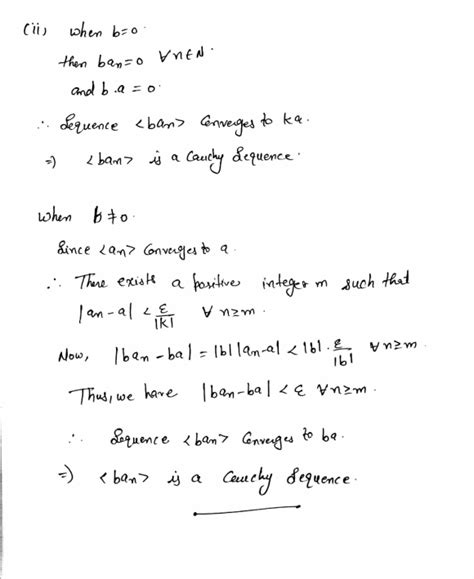 (ii) when b=0.
then ban=0 ∀n∈N.
and b.a = 0.
∴ Sequence <ban> Converges to ka.
⇒ <ban> is a Cauchy Sequence.
when b≠0.
Since <an> Converges to a.
∴ There exists a positive integer m such that
|an-a| < ε/|k| ∀ n≥m.
Now, |ban-ba| = |b||an-a| < |b|. ε/|b| ∀ n≥m
Thus, we have |ban-ba| < ε ∀n≥m.
∴ Sequence <ban> Converges to ba.
⇒ <ban> is a Cauchy Sequence.